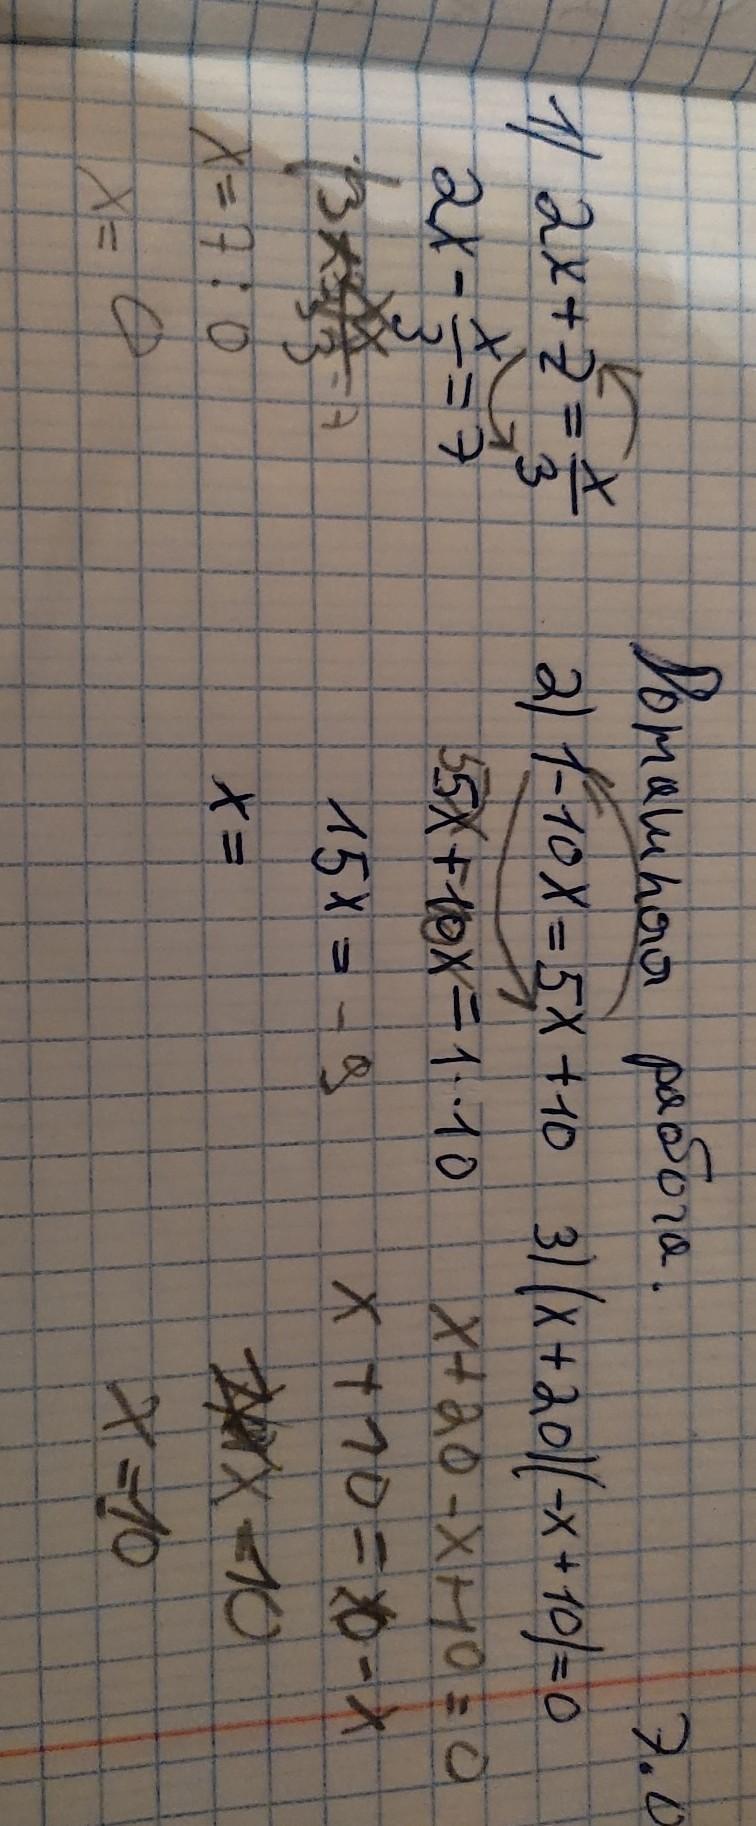 7.0
Домашняя работа.
1) 2x + 7 = x/3
2x - x/3 = 7
x = 7 : 0
x = 0
2) 1 - 10x = 5x + 10
5x + 10x = 1 - 10
15x = - 9
x =
3) (x + 20)(-x + 10) = 0
x + 20 - x + 10 = 0
x + 10 = 0 - x
x - 10
x = -10